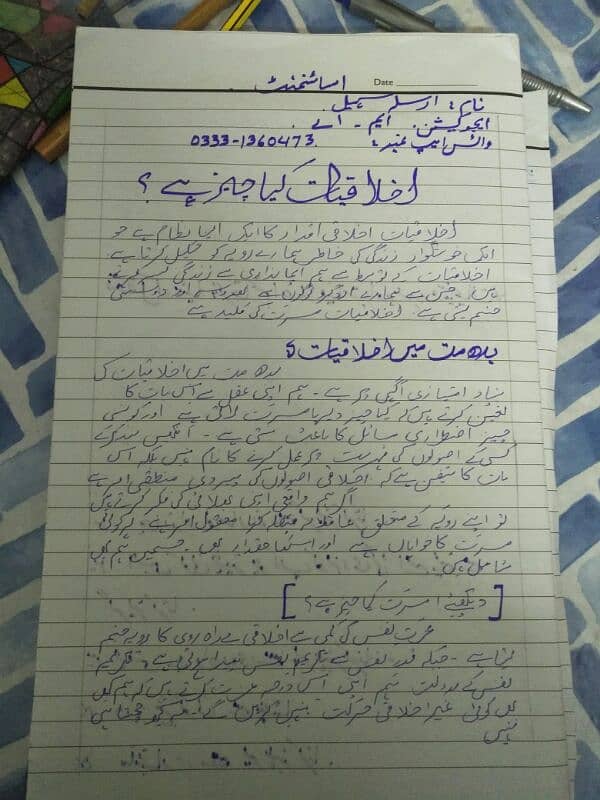 اسائنمنٹ Date
نام: ارسلہ سہیل
ایجوکیشن: ایم - اے
واٹس ایپ نمبر: 0333-1360473
اخلاقیات کیا چیز ہے؟
اخلاقیات اخلاقی اقدار کا ایک ایسا نظام ہے جو
ایک خوشگوار زندگی کی خاطر ہمارے رویہ کو تشکیل کرتا ہے
اخلاقیات کے توسط سے ہم ایمانداری سے زندگی بسر کرتے
ہیں، جس سے ہمارے اردگرد لوگوں سے اور دوستی
جنم لیتی ہے۔ اخلاقیات مسرت کی کلید ہے
بدھ مت میں اخلاقیات:
بدھ مت میں اخلاقیات کی
بنیاد امتیازی آگہی پر ہے۔ ہم اپنی عقل سے اس بات کا
تعین کرتے ہیں کہ کیا چیز دیرپا مسرت لاتی ہے اور کونسی
چیز اضطراری مسائل کا باعث بنتی ہے۔ آنکھیں بند کر کے
کسی کے اصولوں کی فہرست پر عمل کرنے کا نام نہیں بلکہ اس
بات کا متیقن ہے کہ اخلاقی اصولوں کی پیروی منطقی امر ہے
اگر ہم واقعی اپنی بھلائی کی فکر کرتے ہیں
تو اپنے رویہ کے متعلق عاقلانہ معقول امر ہے۔ ہر کوئی
مسرت کا خواہاں ہے اور اسکا حقدار بھی۔ جسمیں ہم بھی
شامل ہیں۔
[دیکھئے: مسرت کیا چیز ہے؟]
عزت نفس کی کمی سے اخلاقی بے راہ روی کا رویہ جنم
لیتا ہے۔ جبکہ قدر نفس سے تکریم نفس پیدا ہوتی ہے۔ تکریم
نفس کے بدولت ہم اپنی اس درجہ عزت کرتے ہیں کہ ہم کبھی
بھی کوئی غیر اخلاقی حرکت نہیں کریں گے۔